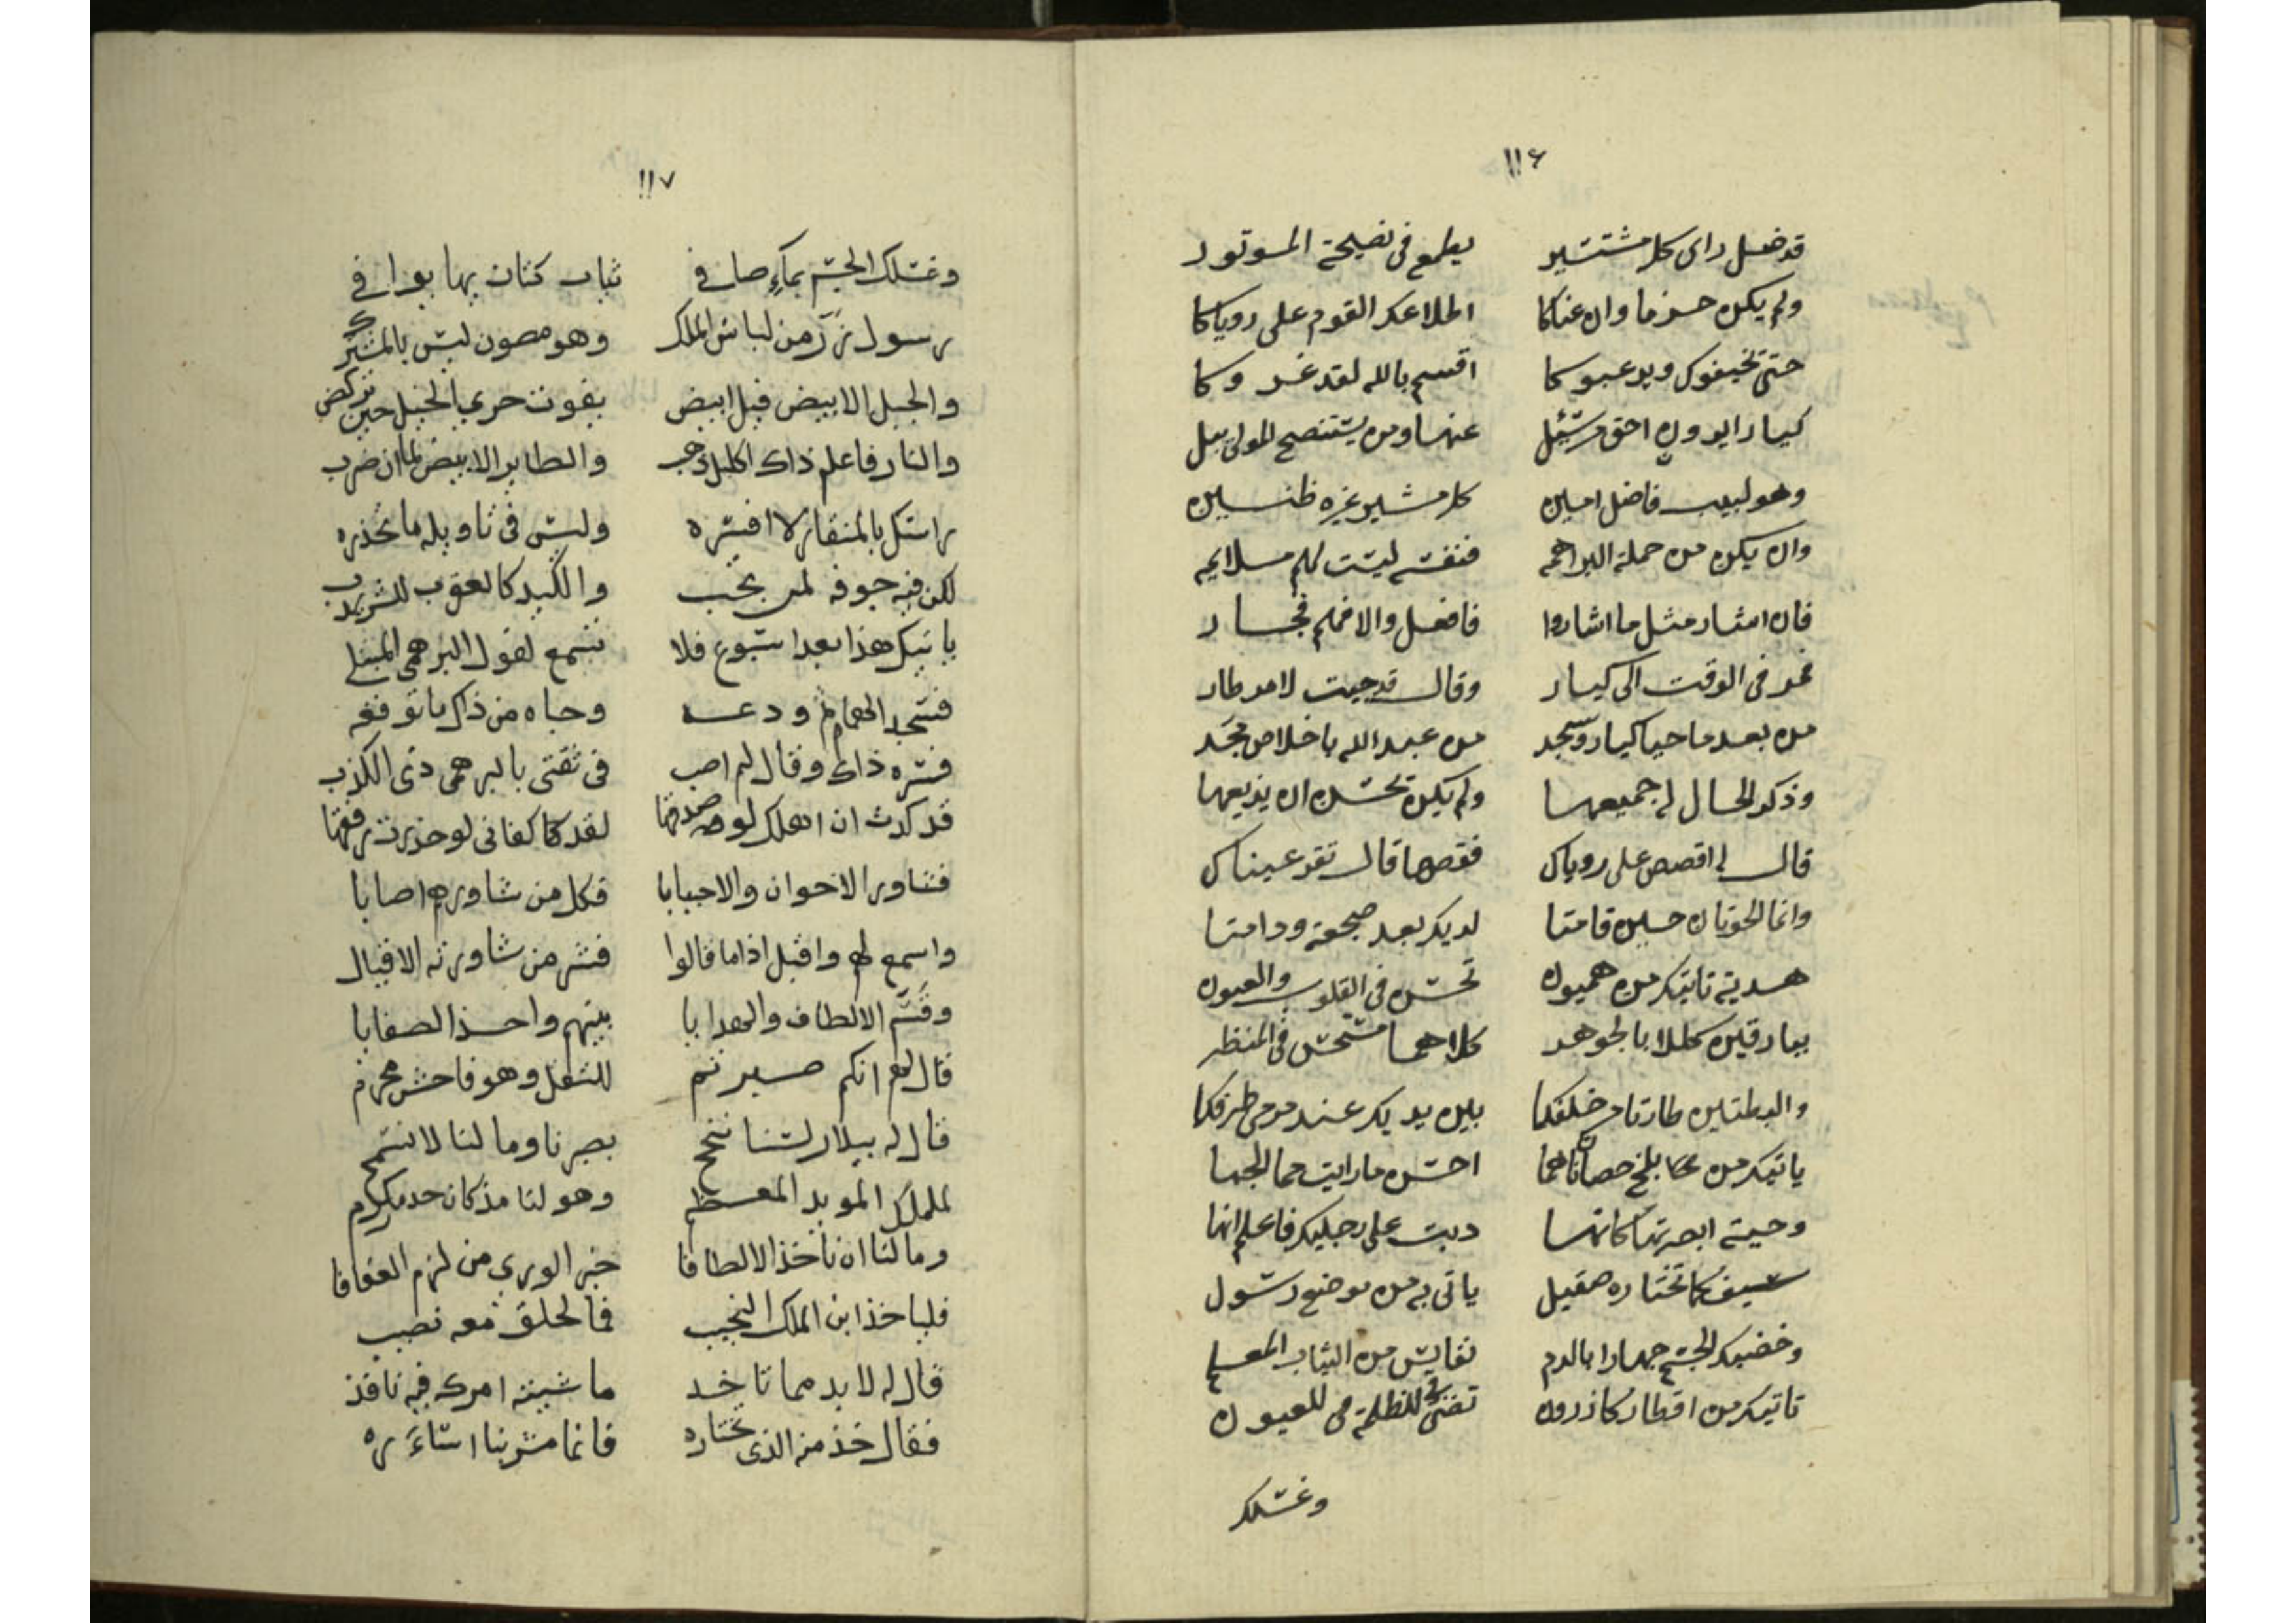 ١١٦
قد ضل راى كل مستشير يطمع فى نصيحة الموتور
ولم يكن حزما وان عناكا اطلاعك القوم على روياكا
حتى تخيفوك ويرعبوكا اقسم بالله لقد غروكا
كيار ايدون احق من سئل عنها ومن يستنصح المولى يبل
وهو لبيب فاضل امين كل مشير غيره ظنين
وان يكن من جملة البراهمه فنفسه ليست لهم مسلايمه
فان اشار مثل ما اشاروا فافعل والا فهم فجار
فمر فى الوقت الى كيار وقال قد جيت لامر طار
من بعد ما حيا كيار وسجد من عبد الله باخلاص مجد
وذكر الحال له جميعها ولم يكن تحسن ان يذيعها
قال لى اقصص على روياك فقصها قال تقر عيناك
وانما الحوتان حين قامتا لديك بعد ضجعة ودامتا
هدية تاتيك من هميون تحسن فى القلوب والعيون
ببارقين كللا بالجوهر كلاهما مستحسن فى المنظر
والبطتين طارتا من خلفكا بين يديك عند مرمى طرفكا
ياتيك من بلخ حصانان هما احسن ما رايت حما الجما
وحية ابصرتها كانها دبت على رجليك فاعلم انها
سيف كما تختاره صقيل ياتى به من موضع رسول
وخضبك الجسم جهارا بالدم نفايس من الثياب المعلم
تاتيك من اقطار كازرون تضئ للظلمة فى العيون
وغسلك
١١٧
وغسلك الجسم بماء صافى ثياب كتان بها يوافى
رسول رز من لباس الملك وهو مصون ليس بالمشترك
والجبل الابيض فيل ابيض يفوت جرى الخيل حين تركض
والنار فاعلم ذاك اكليل ذهب والطاير الابيض لما ان ضرب
راسك بالمنقار لا افسره وليس فى تاويله ما تحذره
لكن فيه جفوه لمن تحب والكيد كالعقرب للشر يدب
ياتيك هذا بعد اسبوع فلا تسمع لقول البرهمى المبتلى
فسجد الهمام ثم ودعه وحباه من ذاك ما توقعه
فسره ذاك وقال لم اصب فى ثقتى بالبرهمى ذى الكذب
قد كدت ان اهلك لو صدقتها لقد كفانى لو حذرت رفقها
فشاور الاخوان والاحبابا فكل من شاورهم اصابا
واسمع لهم واقبل اذا ما قالوا فسر من شاورته الاقبال
وقسم الالطاف والهدايا بينهم واخذ الصفايا
قال لهم انكم صبرتم للشغل وهو فاحش محرم
قال له بيلار لسنا ننجح بصرنا وما لنا لا نسمح
للملك المويد المعظم وهو لنا مذ كان حد مكرم
وما لنا ان ناخذ الالطافا خير الورى من لزم العفافا
فلياخذ ابن الملك النجيب فما لخلق معه نصيب
قال له لا بد مما تاخذ ما شيته امرك فيه نافذ
فقال خذ منه الذى تختاره فانما مشربنا اساره